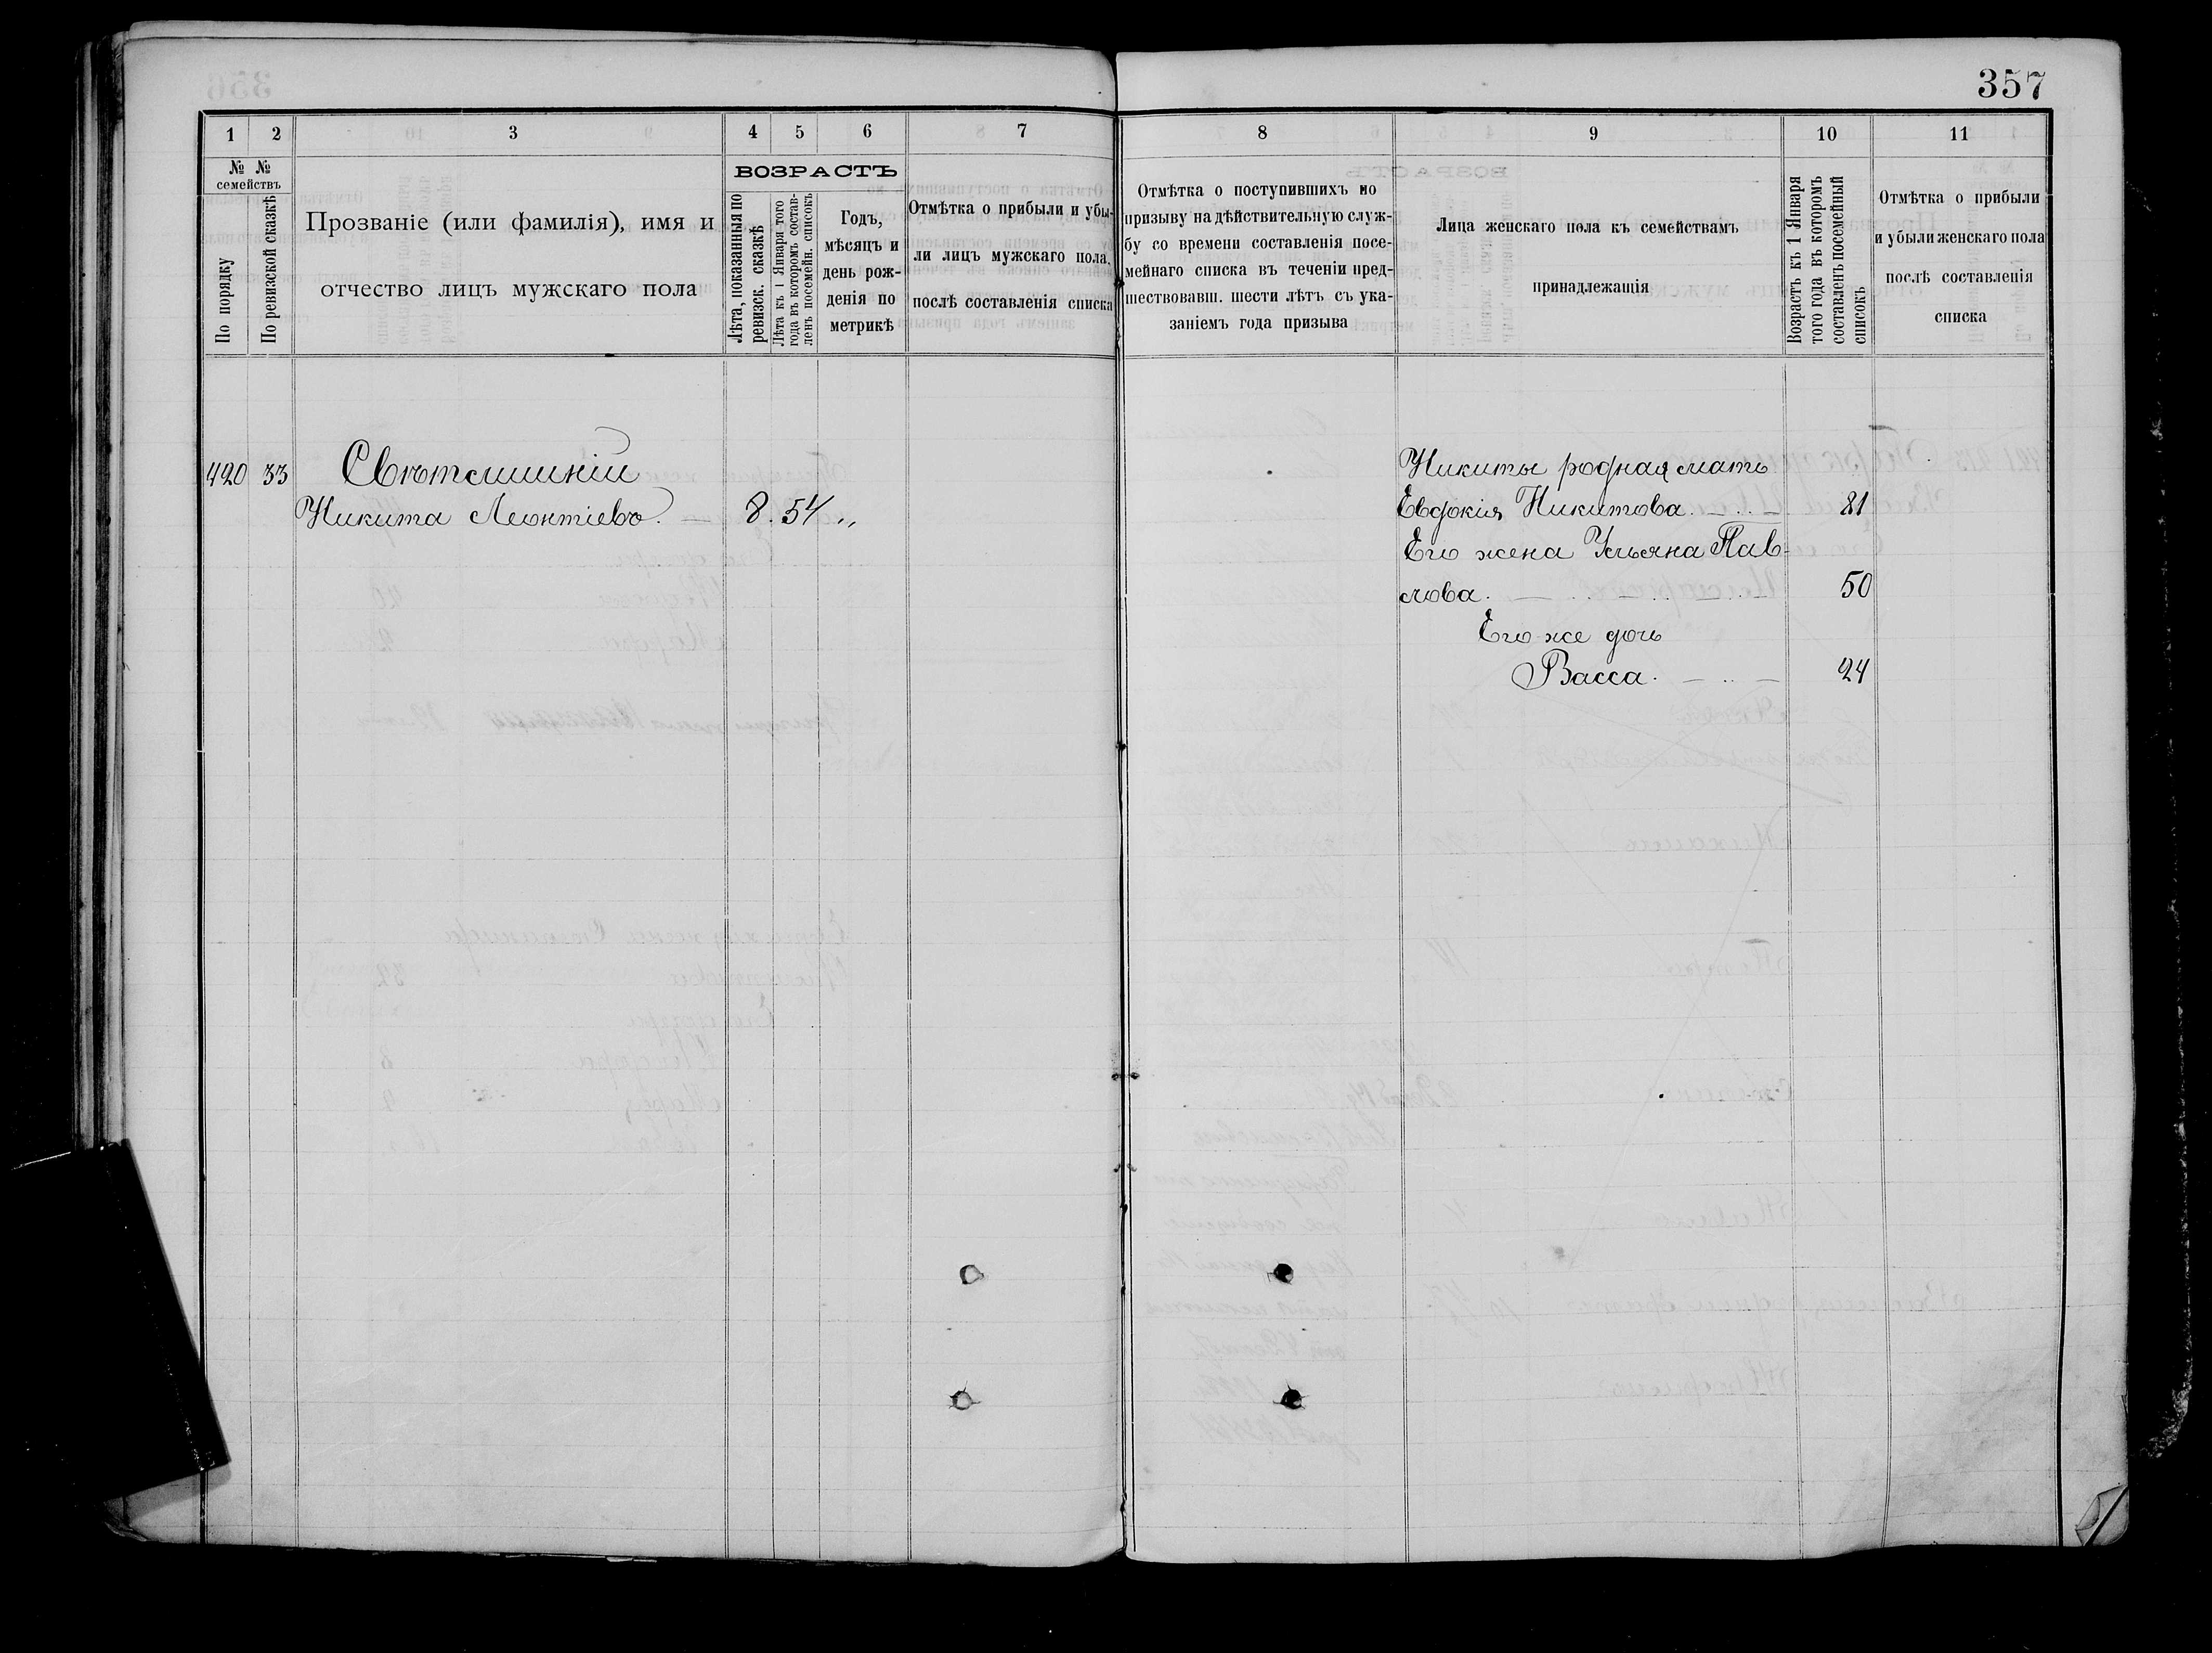 357
1 2 3 4 5 6 7
№ №
семействъ
По порядку
По ревизской сказкѣ
Прозваніе (или фамилія), имя и
отчество лицъ мужскаго пола
ВОЗРАСТЪ
Лѣта, показанныя по
ревизск. сказкѣ
Лѣта къ 1 Января того
года въ которомъ состав-
ленъ посемейн. списокъ
Годъ,
мѣсяцъ и
день рож-
денія по
метрикѣ
Отмѣтка о прибыли и убы-
ли лицъ мужскаго пола,
послѣ составленія списка
420 33
Никита Леонтіевъ. — 8. 54 „
8 9 10 11
Отмѣтка о поступившихъ по
призыву на дѣйствительную служ-
бу со времени составленія посе-
мейнаго списка въ теченіи пред-
шествовавш. шести лѣтъ съ ука-
заніемъ года призыва
Лица женскаго пола къ семействамъ
принадлежащія
Возрастъ къ 1 Января
того года въ которомъ
составленъ посемейный
списокъ
Отмѣтка о прибыли
и убыли женскаго пола
послѣ составленія
списка
Никиты родная мать
Евдокія Никитова. 81
Его жена Ульяна Пав-
лова. 50
Его же дочь
Васса. 24